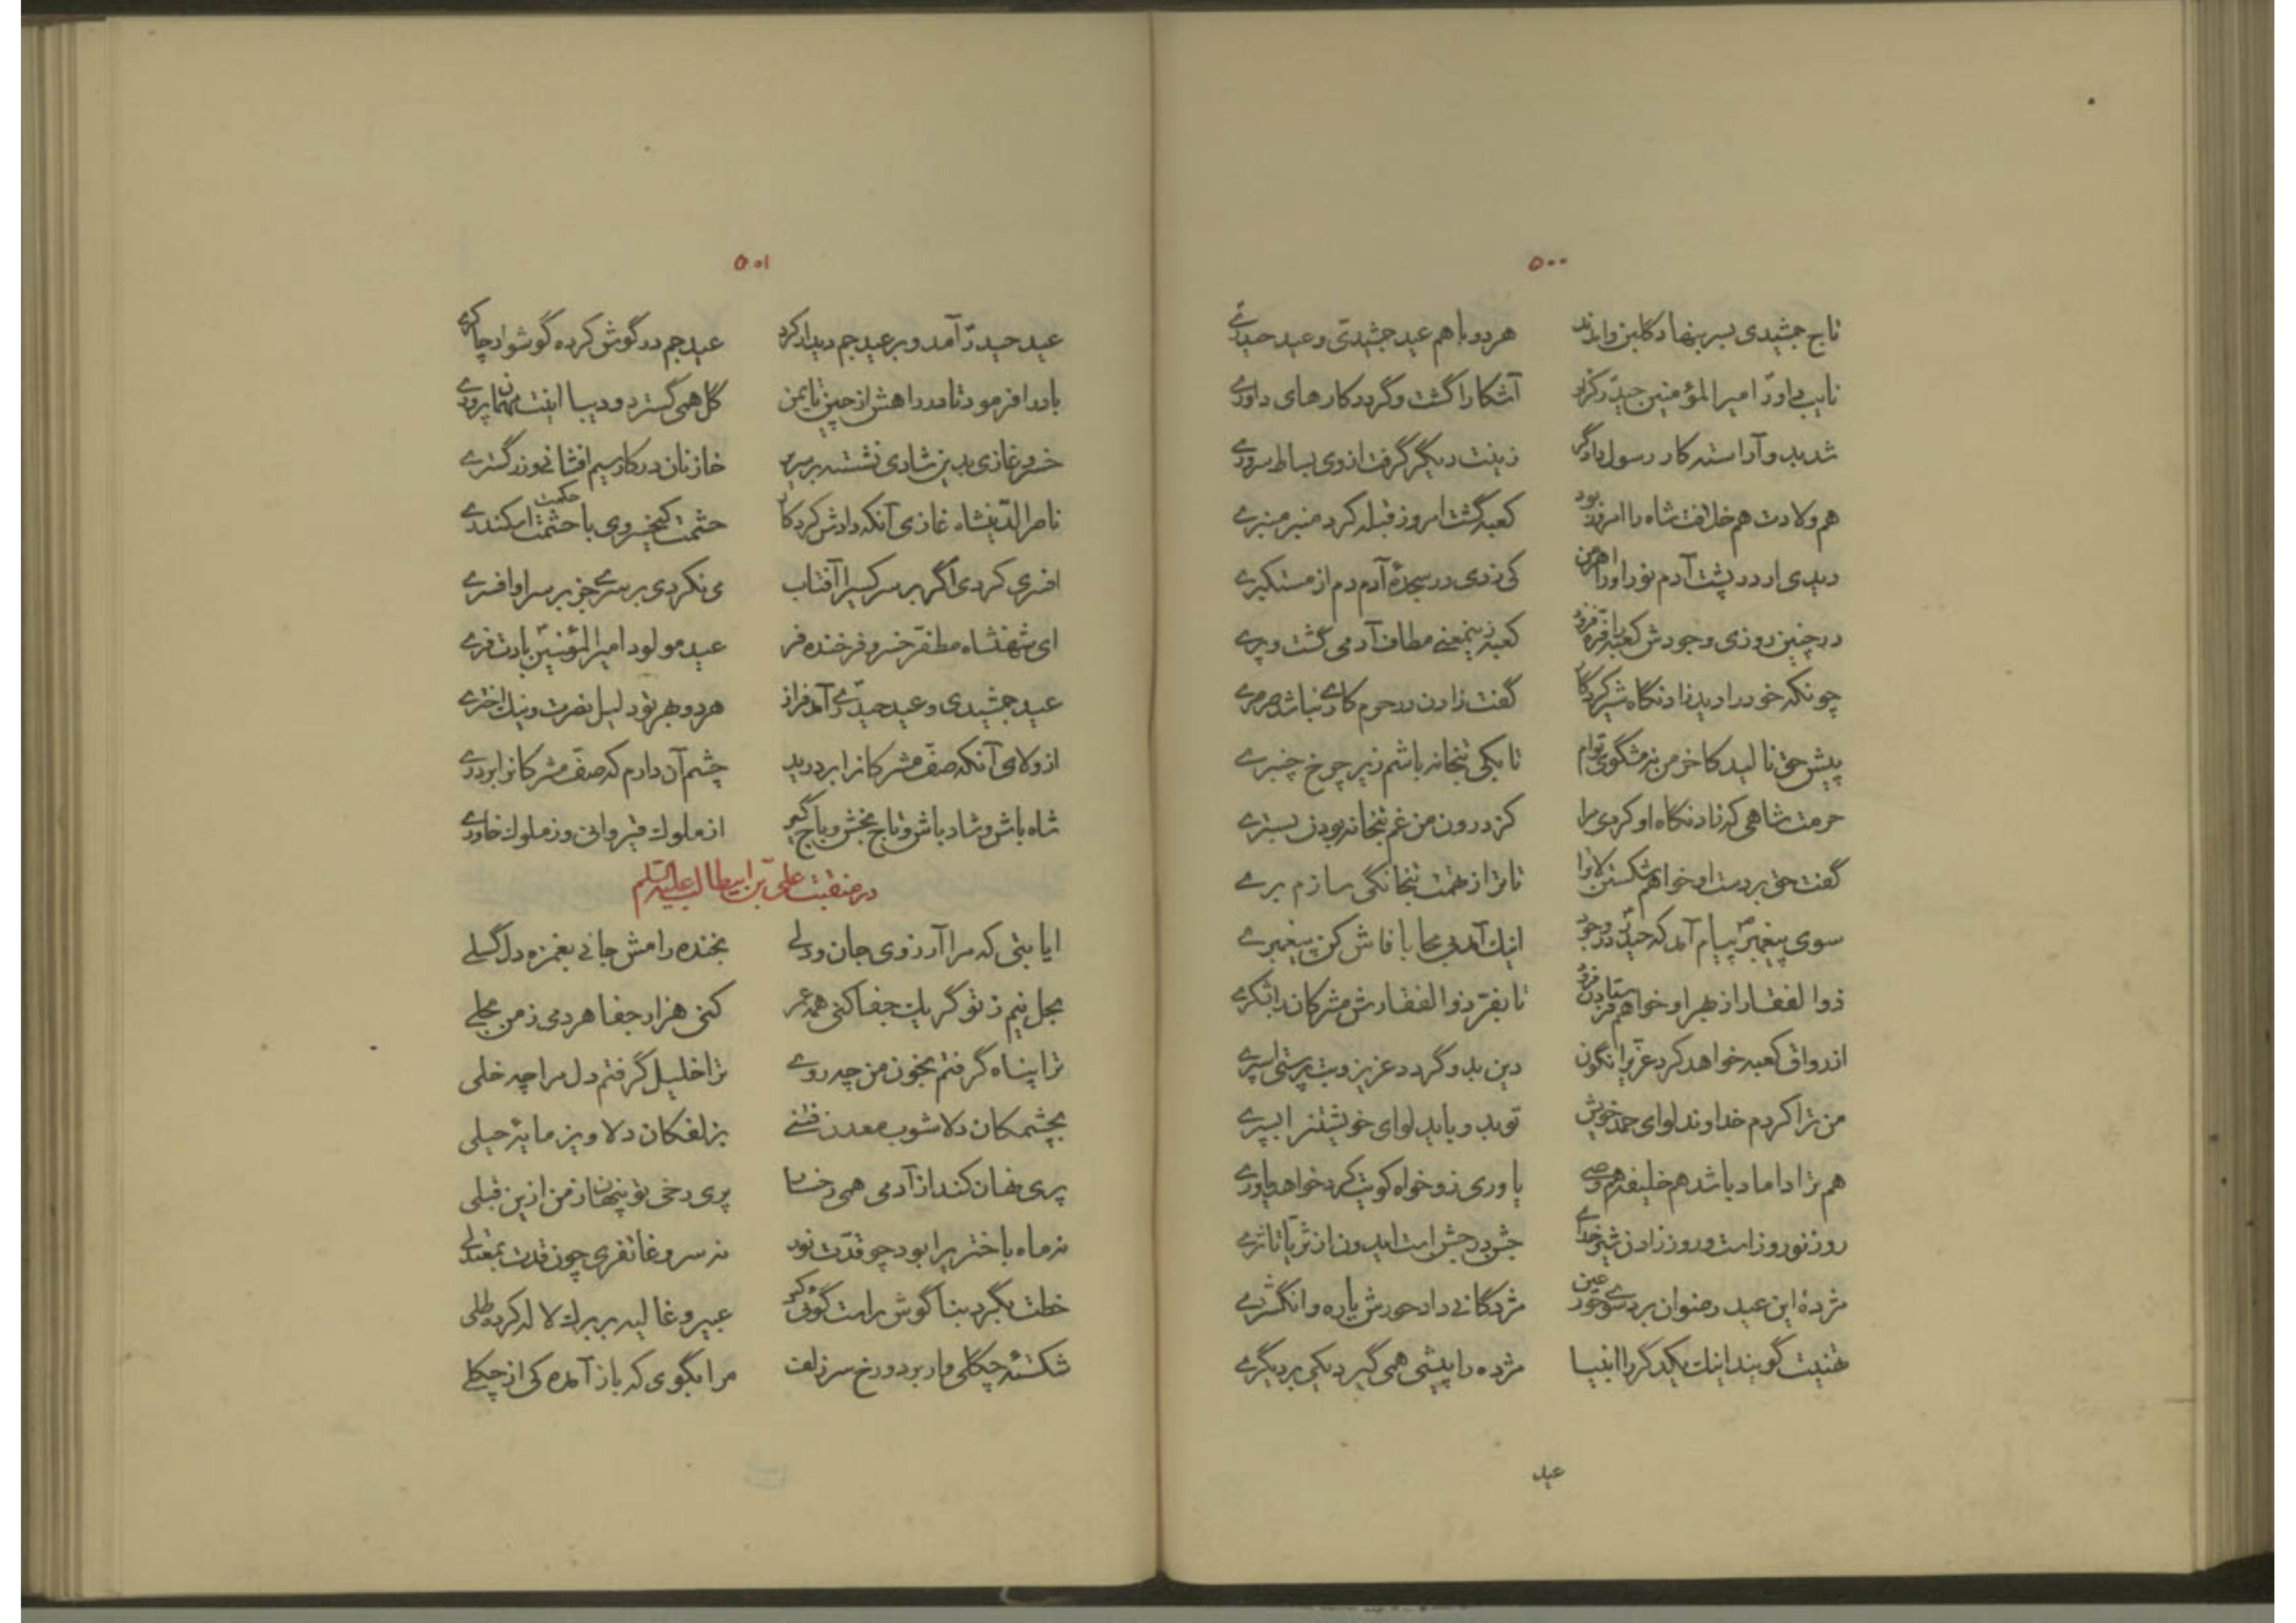 ۵۰۰
تاج جمشیدی بسر بنهاد گلبن وامدند هر دو با هم عید جمشیدی و عید حیدری
نایب داور امیرالمؤمنین حیدر کزو آشکارا گشت و گردد کارهای داوری
شد بدو آراسته کار رسول دادگر زینت دیگر گرفت ازوی بساط سروری
هم ولادت هم خلافت شاه را امروز بود کعبه گشت امروز قبله کرد منبر منبری
دیدی ار در پشت آدم نور او را اهرمن کی زدی در سجدهٔ آدم دم از مستکبری
در چنین روزی وجودش کعبه را فر فزود کعبه زینمعنی مطاف آدمی گشت و پری
چونکه خود را دید زادنگاه شیر کردگار گفت زادن در حرم کاری نباشد سرسری
پیش حق نالید کاخر من نه مشگوی توام تا بکی بتخانه باشم زیر چرخ چنبری
حرمت شاهی که زادنگاه او کردی مرا کز درون من غم بتخانه بودن بسترے
گفت حق بر دست او خواهم شکستن لات را تا ترا از تهمت بتخانگی سازم برے
سوی پیغمبر پیام آمد که حیدر در وجود اینک آمد بی محابا فاش کن پیغمبرے
ذوالفقار از بهر او خواهم فرستادن فرود تا بفر ذوالفقارش مشرکان را بشکرے
از رواق کعبه خواهد کرد عزی را نگون دین بدو گردد عزیز و بت پرستی اسپرے
من ترا کردم خداوند لوای حمد خویش تو بدو باید لوای خویشتن را بسپرے
هم ترا داماد باشد هم خلیفه هم وصی یاوری زو خواه کو نیکت کرد خواهد یاورے
روز نوروز است و روز زادن شیر خدای جشن در جشن است ایدون از ثریا تا ثرے
مژدهٔ این عید رضوان برد سوی حور عین مژدگانی داد حورش یاره و انگشترے
تهنیت گویند اینک یکدگر را انبیا مژده را پیشی همی گیرد یکی بر دیگرے
عید
۵۰۱
عید حیدر آمد و بر عید جم دیدار کرد عید جم در گوش کرده گوشوار چاکرے
باد را فرمود تا در راهش از چین تا یمن گل همی گسترد و دیبا اینت مهمان پرورے
خسرو غازی بدین شادی نشسته بر سریر خازنان در کار سیم افشانی و زر گسترے
ناصرالدینشاه غازی آنکه دادش کردگار حشمت کیخسروی با حشمت اسکندرے
حکمت
افسری کردی اگر بر سر کسیرا آفتاب می نکردی بر سری جز بر سر او افسرے
ای شهنشاه مظفر خسرو فرخنده فر عید مولود امیرالمؤمنین بادت فرے
عید جمشیدی و عید حیدری آمد فراز هر دو بهر تو دلیل نصرت و نیک اخترے
از ولای آنکه صف مشرکانرا بر درید چشم آن دارم که صف مشرکانرا بر درے
شاه باش و شاد باش و تاج بخش و باج گیر از ملوک قیروانی وز ملوک خاورے
در منقبت علی بن ابیطالب علیه السلم
ایا بتی که مرا آرزوی جان و دلے بخنده رامش جانی بغمزه دل گسلے
بحل نیم ز تو گر یک جفا کنی همه عمر کنی هزار جفا هر دمی ز من بحلے
ترا پناه گرفتم بخون من چه روے ترا خلیل گرفتم دل مرا چه خلی
بچشمکان دلاشوب معدن فتنے بزلفکان دلاویز مایهٔ حیلی
پری نهان کند از آدمی همی رخسار پری رخی تو پنهان ز من ازین قبلی
نه ماه باختری را بود چو قدت نور نه سرو غاتفری چون قدت بمعتدلے
خطت بگرد بناگوش راست گوئی کز عبیر و غالیه بر برک لاله کرده طلی
شکستهٔ چگلی وار بر دو رخ سر زلف مرا بگوی که باز آمده کی از چگلے